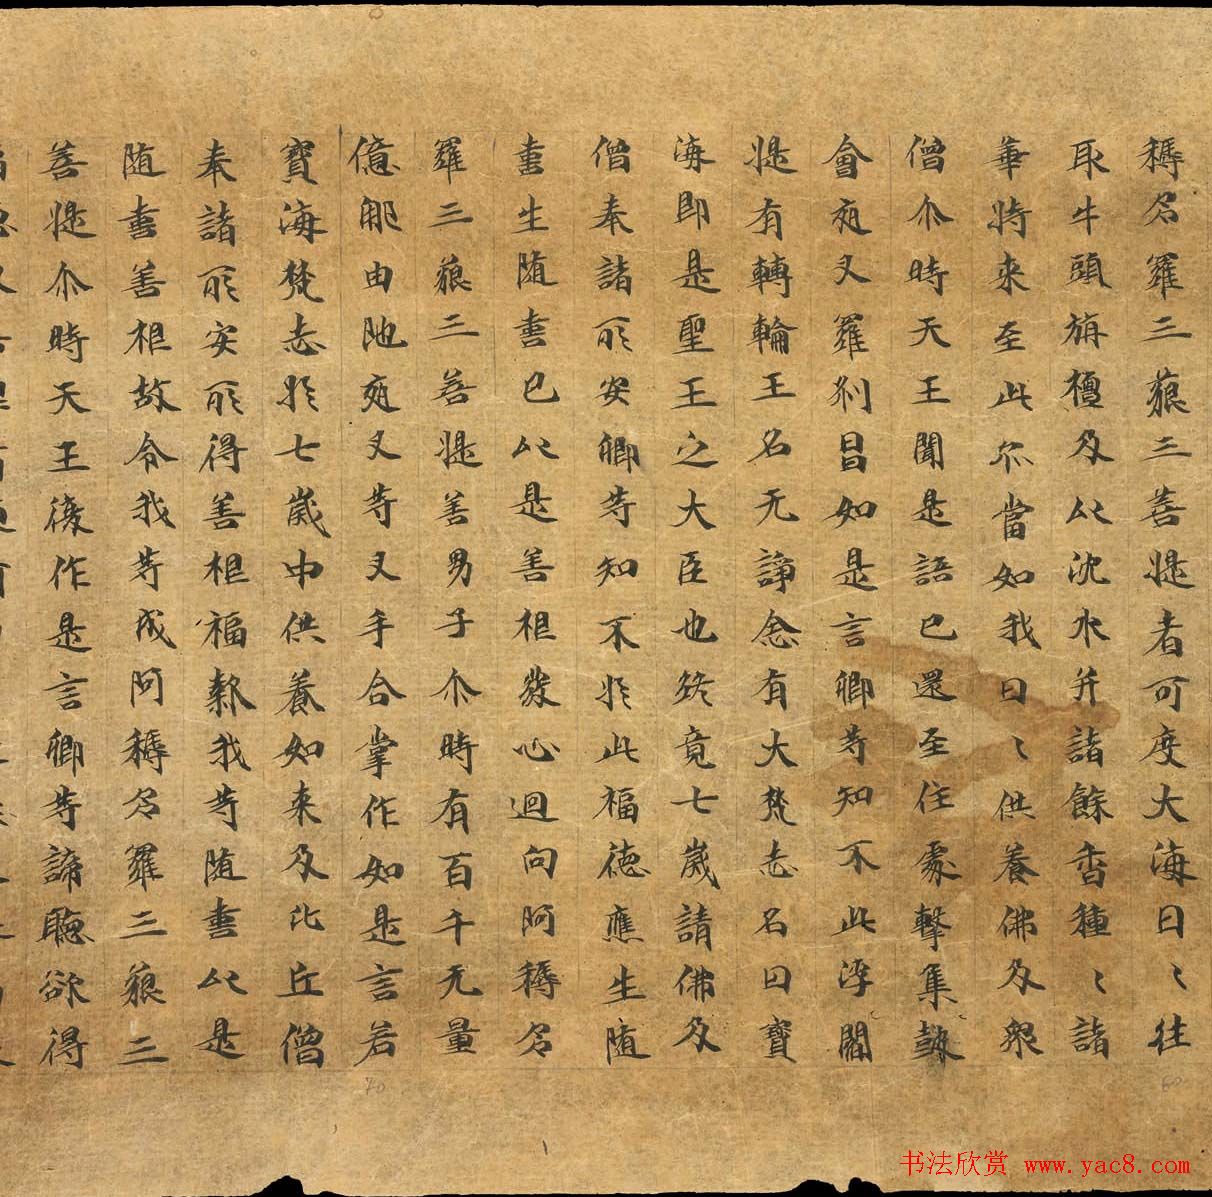 耨多羅三藐三菩提者可度大海日〻往
取牛頭旃檀及以沈水并諸餘香種〻諸
華持來至此亦當如我日〻供養佛及眾
僧尒時天王聞是語已還至住處擊集鼓
會夜叉羅刹昌如是言卿等知不此浮閻
提有轉輪王名无諍念有大梵志名曰寶
海即是聖王之大臣也終竟七歲請佛及
僧奉諸所安卿等知不於此福德應生隨
喜生隨喜已以是善根發心迴向阿耨多
羅三藐三菩提善男子尒時有百千无量
億那由他夜叉等叉手合掌作如是言若
寶海梵志於七歲中供養如來及比丘僧
奉諸所安所得善根福報我等隨喜以是
隨喜善根故令我等成阿耨多羅三藐三
菩提尒時天王復作是言卿等諦聽欲得
书法欣赏 www.yac8.com